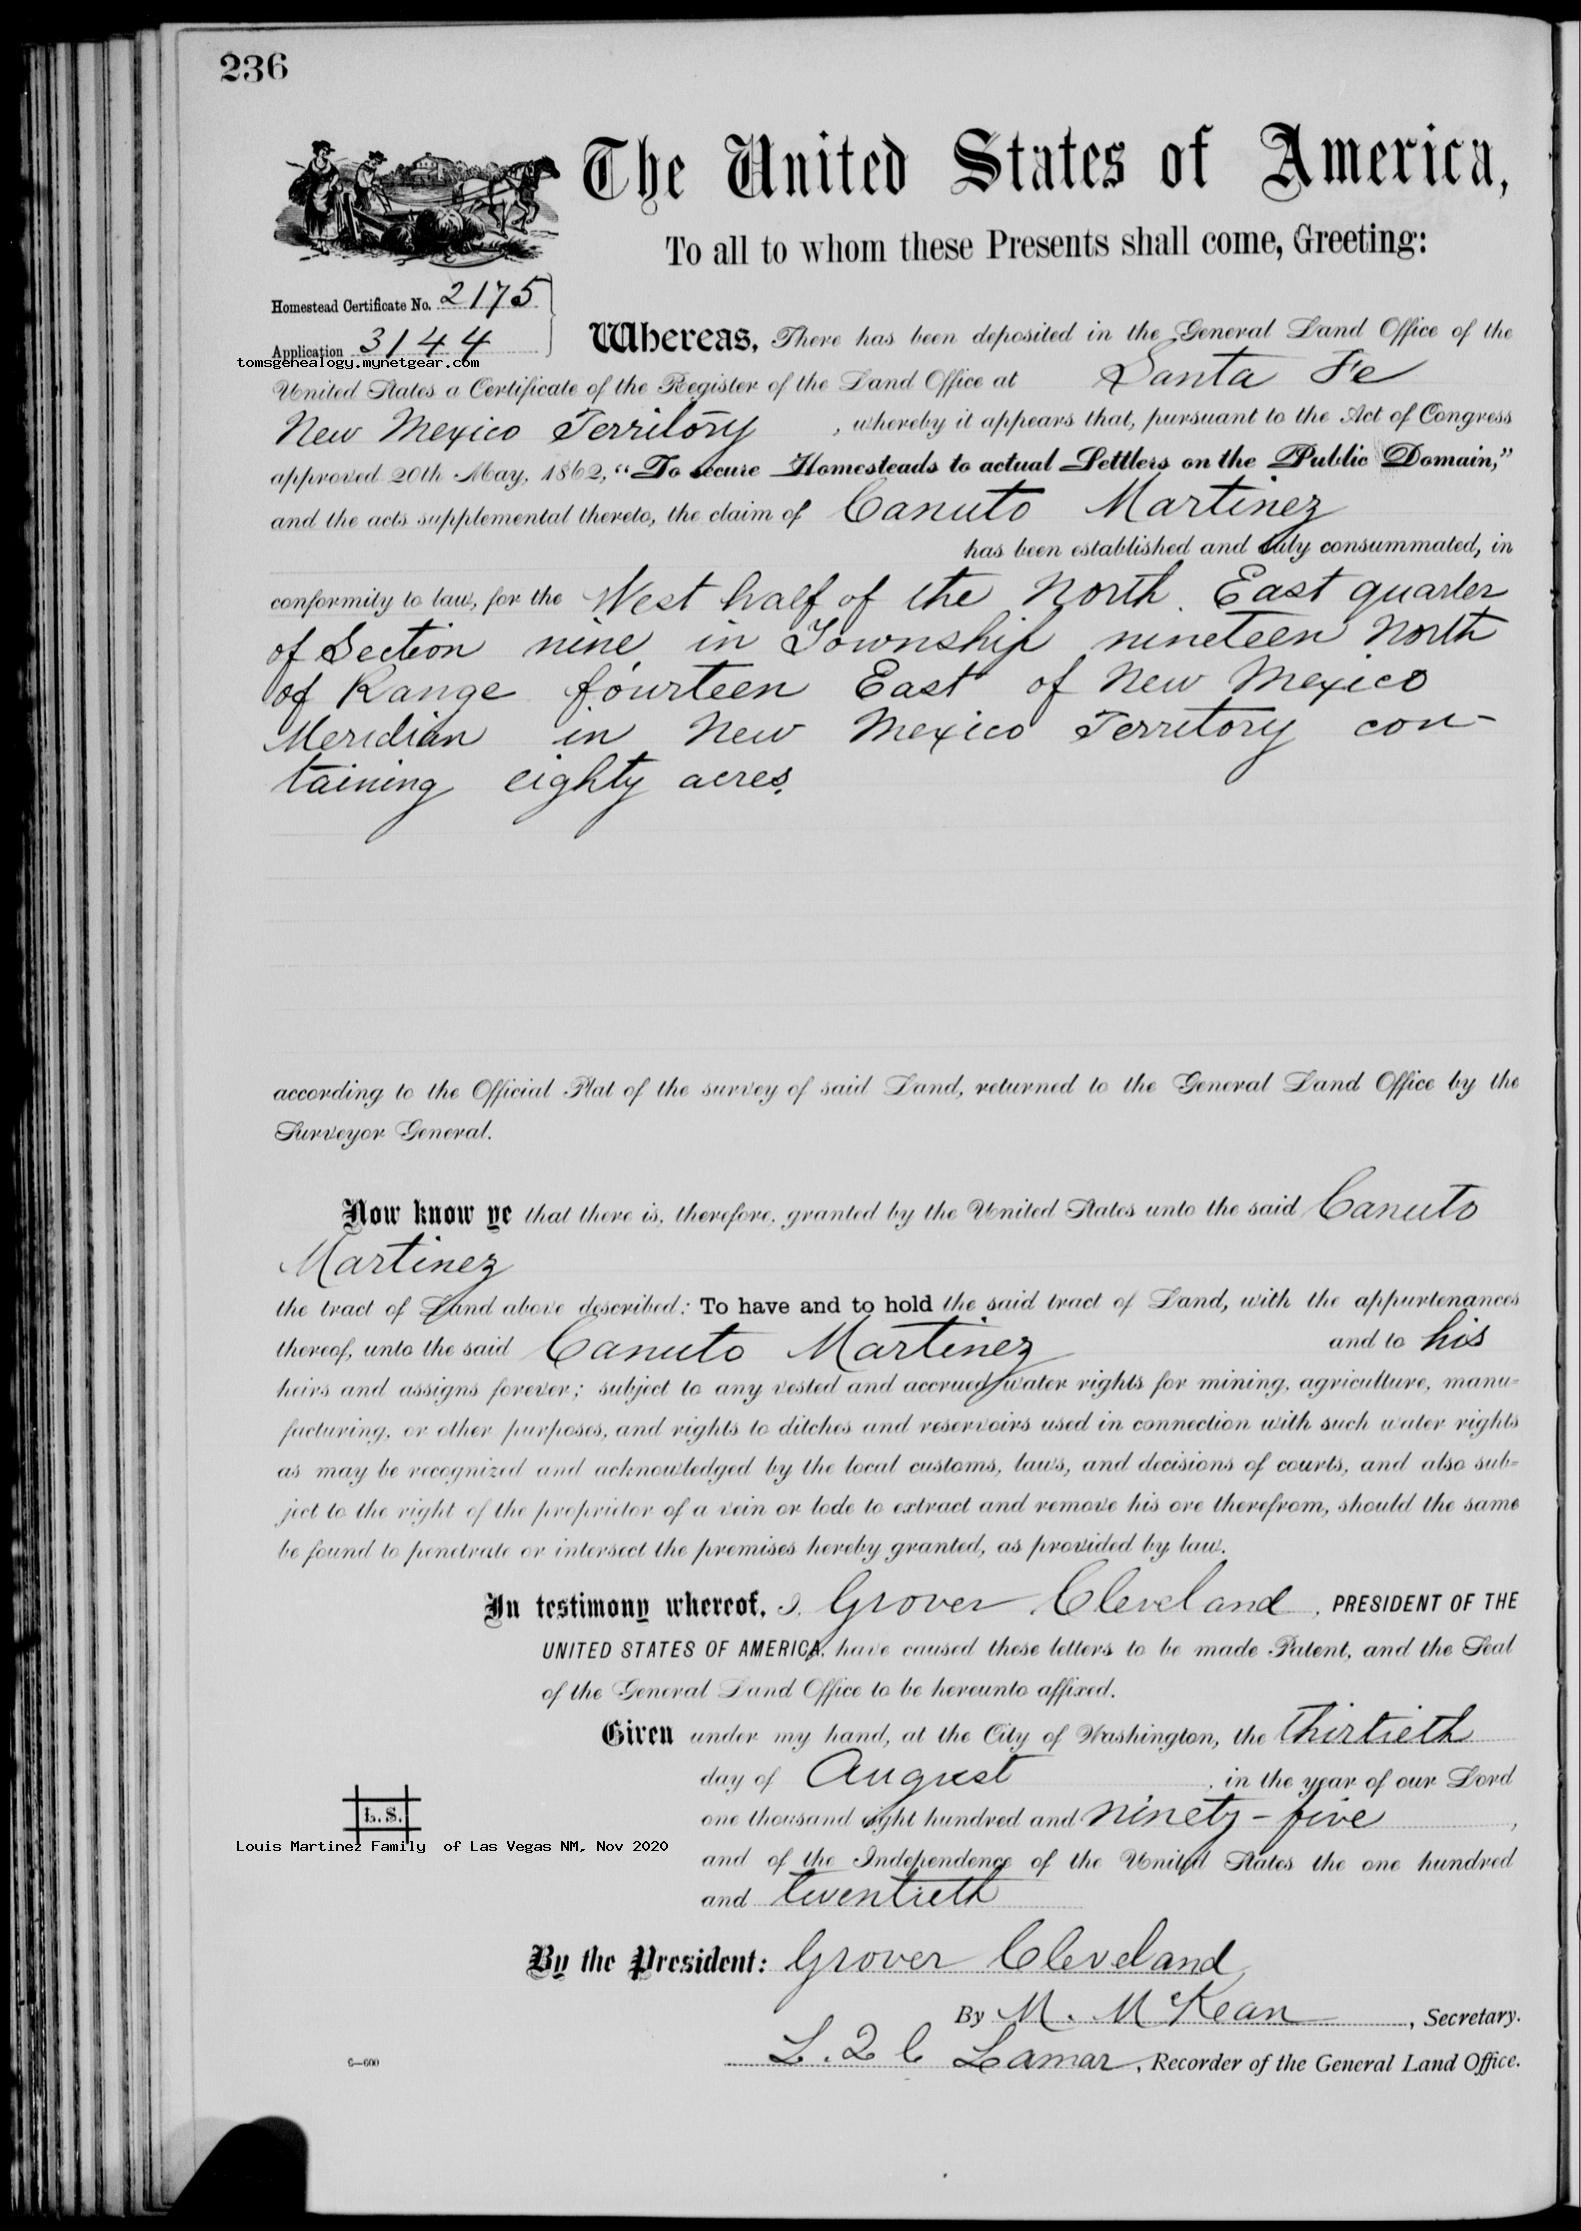 236
The United States of America,
To all to whom these Presents shall come, Greeting:
Homestead Certificate No. 2175
Application 3144
tomsgenealogy.mynetgear.com
Whereas, There has been deposited in the General Land Office of the
United States a Certificate of the Register of the Land Office at Santa Fe
New Mexico Territory, whereby it appears that, pursuant to the Act of Congress
approved 20th May, 1862, “To secure Homesteads to actual Settlers on the Public Domain,”
and the acts supplemental thereto, the claim of Canuto Martinez
has been established and duly consummated, in
conformity to law, for the West half of the North East quarter
of Section nine in Township nineteen North
of Range fourteen East of New Mexico
Meridian in New Mexico Territory con-
taining eighty acres.
according to the Official Plat of the survey of said Land, returned to the General Land Office by the
Surveyor General.
Now know ye that there is, therefore, granted by the United States unto the said Canuto
Martinez
the tract of Land above described: To have and to hold the said tract of Land, with the appurtenances
thereof, unto the said Canuto Martinez and to his
heirs and assigns forever; subject to any vested and accrued water rights for mining, agriculture, manu=
facturing, or other purposes, and rights to ditches and reservoirs used in connection with such water rights
as may be recognized and acknowledged by the local customs, laws, and decisions of courts, and also sub=
ject to the right of the proprietor of a vein or lode to extract and remove his ore therefrom, should the same
be found to penetrate or intersect the premises hereby granted, as provided by law.
In testimony whereof, I, Grover Cleveland, PRESIDENT OF THE
UNITED STATES OF AMERICA, have caused these letters to be made Patent, and the Seal
of the General Land Office to be hereunto affixed.
Given under my hand, at the City of Washington, the thirtieth
day of August, in the year of our Lord
one thousand eight hundred and ninety-five,
and of the Independence of the United States the one hundred
and twentieth
L.S.
Louis Martinez Family of Las Vegas NM, Nov 2020
By the President: Grover Cleveland
By M. McKean, Secretary.
L. Q C Lamar, Recorder of the General Land Office.
6—600